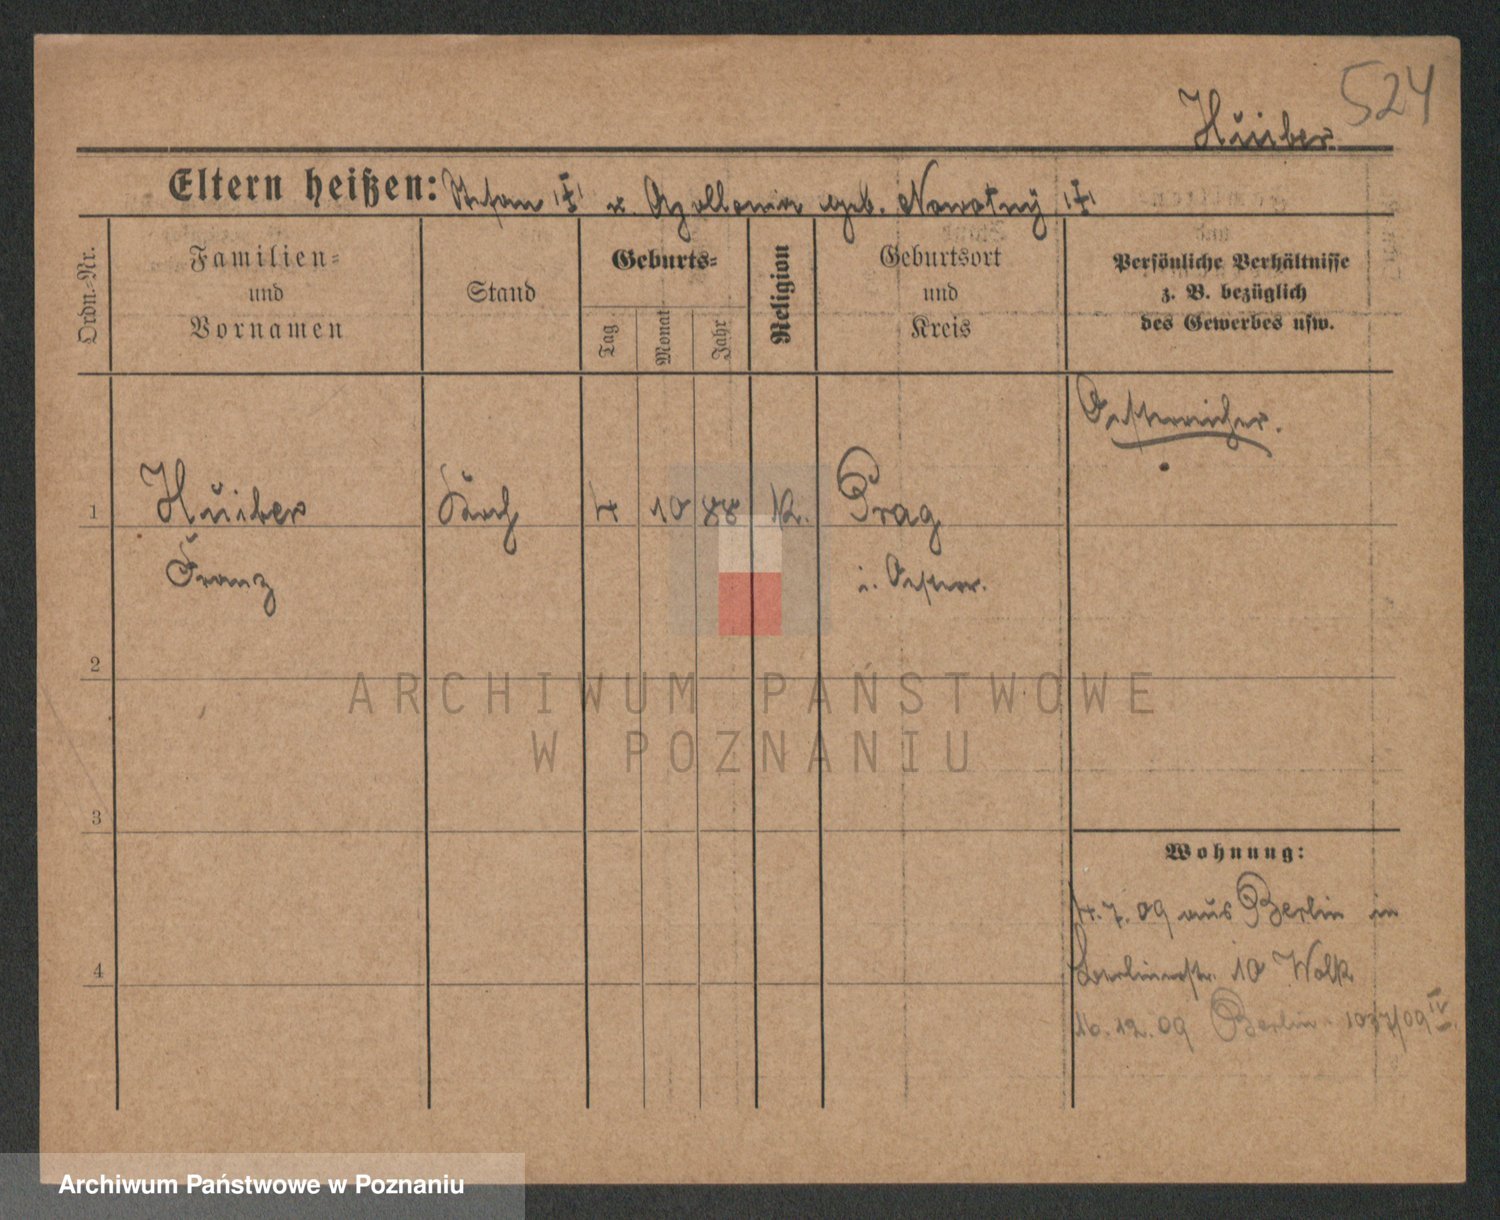 524
Huiber.
Eltern heißen: Stefan u. Apollonia geb. Nowotny
Ordn.-Nr.
Familien-
und
Vornamen
Stand
Geburts-
Tag
Monat
Jahr
Religion
Geburtsort
und
Kreis
Persönliche Verhältnisse
z. B. bezüglich
des Gewerbes usw.
Oesterreicher.
1 Huiber Koch 4 10 88 K. Prag
Franz i. Oesterr.
2
ARCHIWUM PAŃSTWOWE
W POZNANIU
3
Wohnung:
4.7.09 aus Berlin in
Berlinerstr. 10 Wolk
4
16.12.09 Berlin 1037/09 IV.
Archiwum Państwowe w Poznaniu